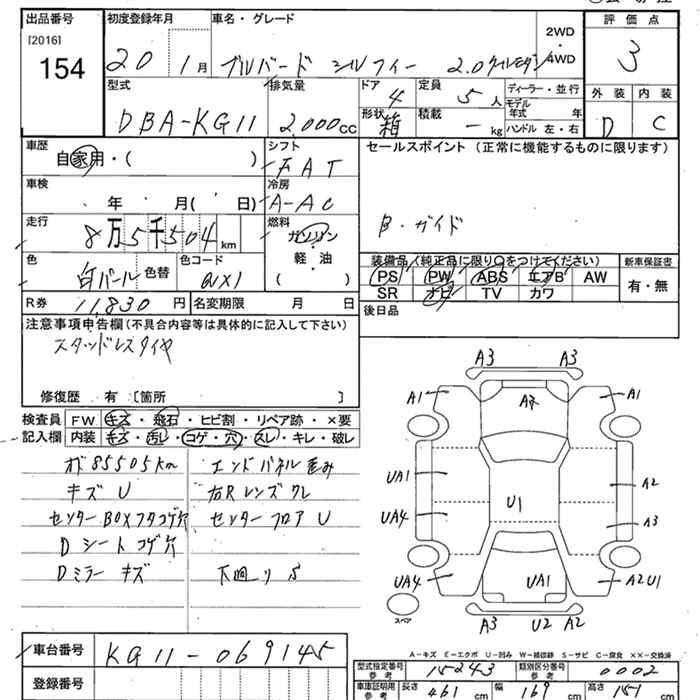 出品番号 初度登録年月 車名・グレード 評価点
[2016] 154 20 1月 ブルーバード シルフィー 2.0 2WD・4WD 3
外装 内装
D C
型式 排気量 ドア 定員 ディーラー・並行
DBA-KG11 2,000cc 4 5人 モデル年式 年
形状 箱 積載 -kg ハンドル 左・右
車歴 シフト セールスポイント (正常に機能するものに限ります)
自家用・( ) FAT
車検 冷房
年 月( 日) A-AC
走行 燃料 B・ガイド
8万5千504km ガソリン
軽・油
( )
色 色替 色コード 装備品(純正品に限り○をつけてください) 新車保証書
白パール QX1 PS PW ABS エアB AW 有・無
SR ナビ TV カワ
R券 11,830円 名変期限 月 日 後日品
注意事項申告欄(不具合内容等は具体的に記入して下さい)
スタッドレスタイヤ
修復歴 有 〔箇所 〕
検査員 FW キズ・飛石・ヒビ割・リペア跡・×要
記入欄 内装 キズ・汚レ・コゲ・穴・スレ・キレ・破レ
オド85505km エンドパネル歪み
キズ U 右Rレンズワレ
センターBOXフタコゲ穴 センターフロア U
Dシート コゲ穴
Dミラー キズ 下回り S
A3 A3
A1 A1
UA1 A2
U1
UA4 A3
UA4 UA1 A2U1
スペア
A3 U2 A2
A-キズ E-エクボ U-凹み W-補修跡 S-サビ C-腐食 ××-交換済
車台番号 KG11-069145
登録番号
型式指定番号 参考 15243 類別区分番号 参考 0002
車庫証明用 参考 長さ 461cm 幅 169cm 高さ 151cm